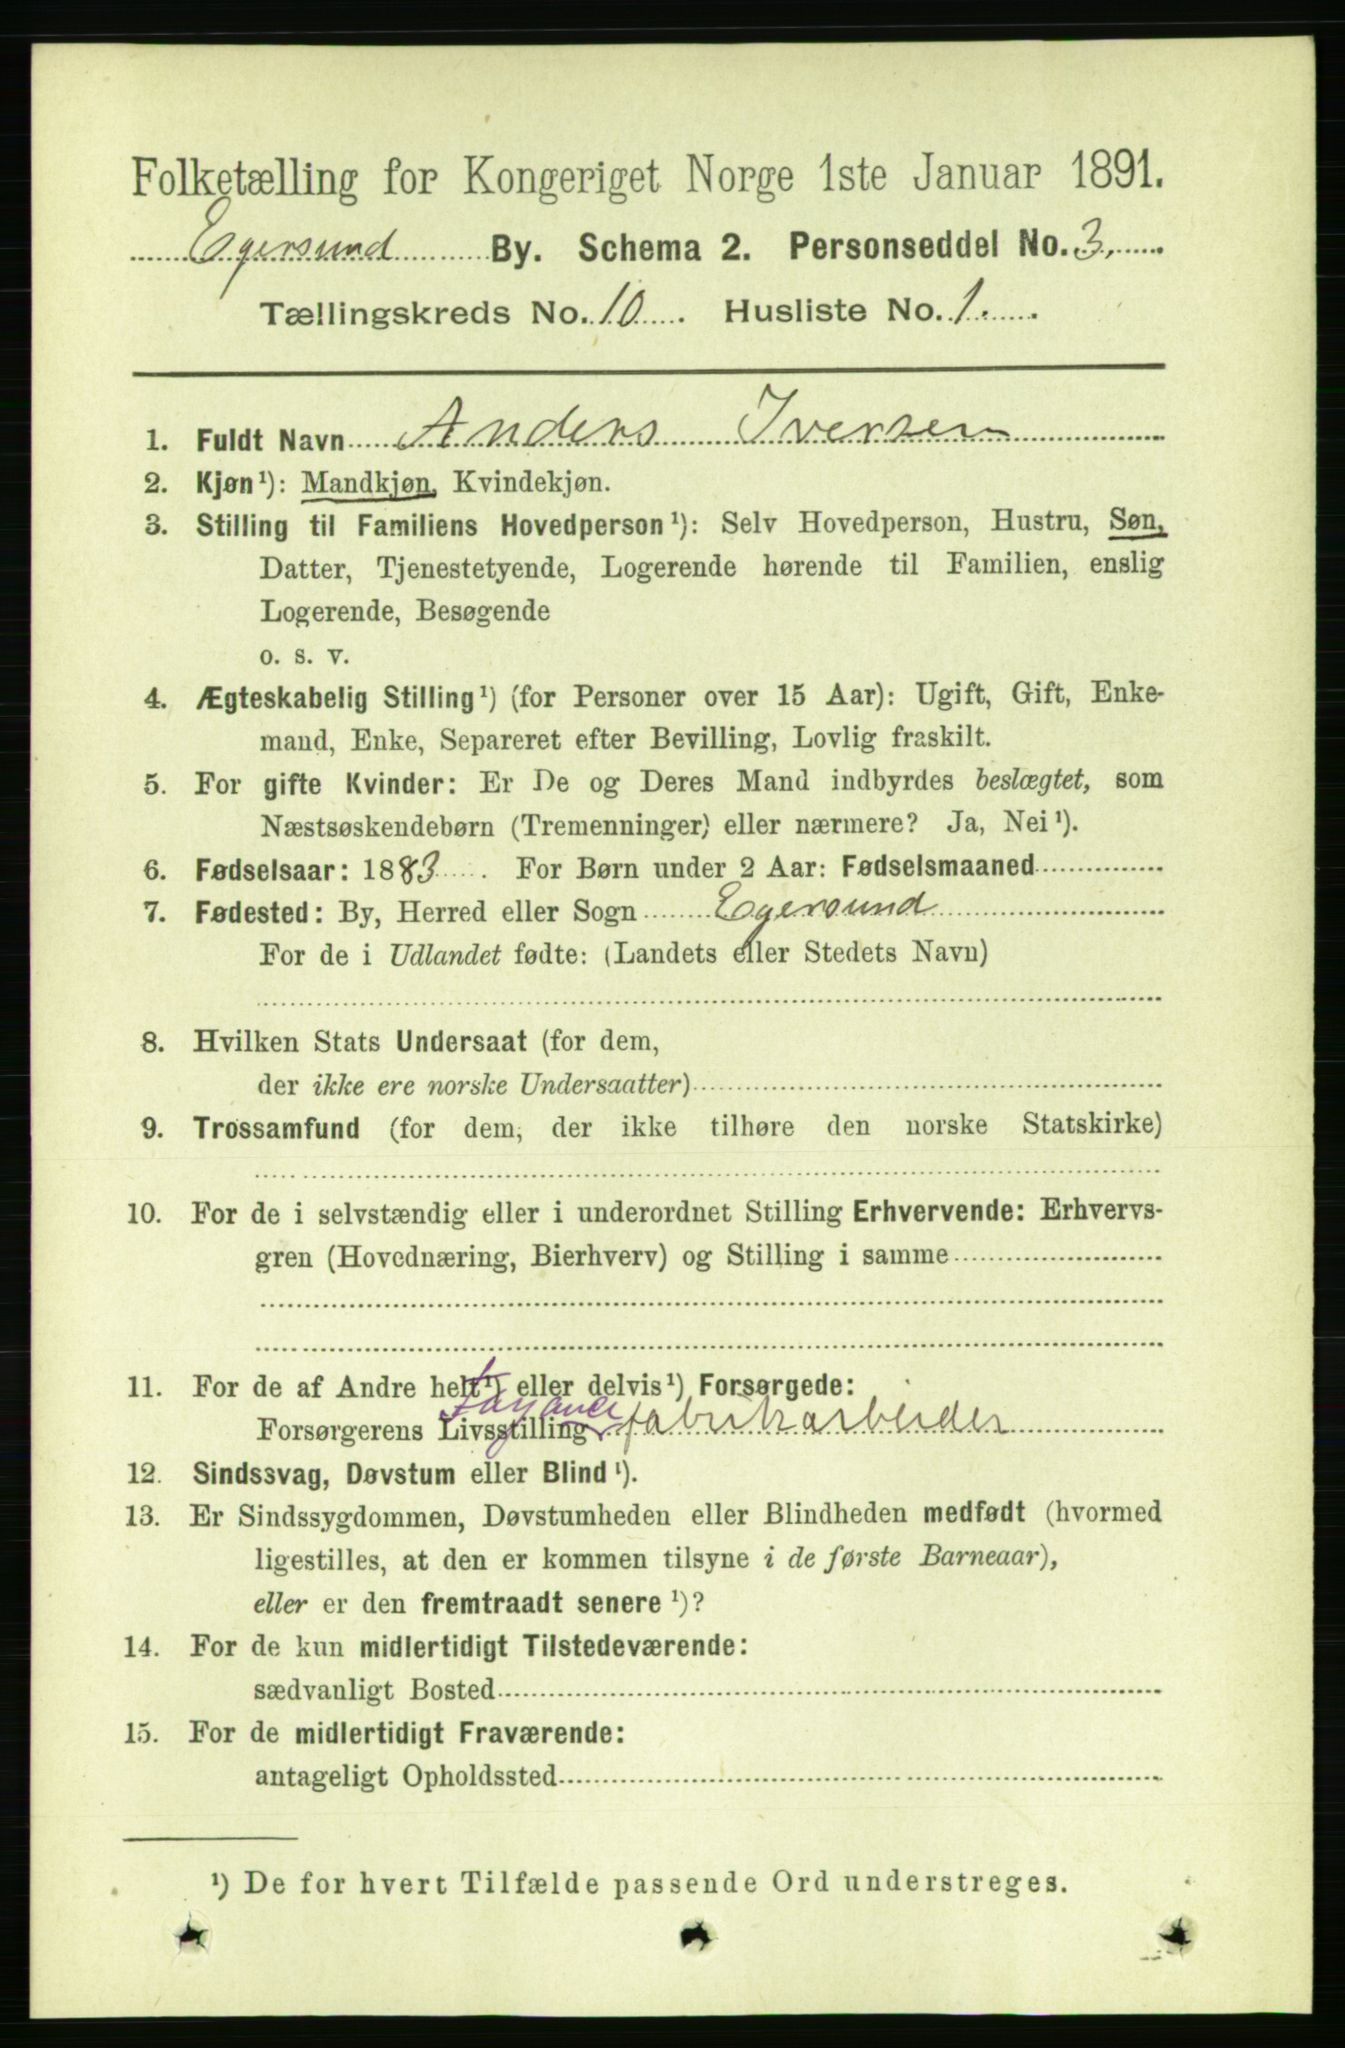 Folketælling for Kongeriget Norge 1ste Januar 1891.
Egersund By. Schema 2. Personseddel No. 3.
Tællingskreds No. 10. Husliste No. 1.
1. Fuldt Navn Anders Iversen
2. Kjøn¹): Mandkjøn, Kvindekjøn.
3. Stilling til Familiens Hovedperson¹): Selv Hovedperson, Hustru, Søn,
Datter, Tjenestetyende, Logerende hørende til Familien, enslig
Logerende, Besøgende
o. s. v.
4. Ægteskabelig Stilling¹) (for Personer over 15 Aar): Ugift, Gift, Enke-
mand, Enke, Separeret efter Bevilling, Lovlig fraskilt.
5. For gifte Kvinder: Er De og Deres Mand indbyrdes beslægtet, som
Næstsøskendebørn (Tremenninger) eller nærmere? Ja, Nei¹).
6. Fødselsaar: 1883. For Børn under 2 Aar: Fødselsmaaned
7. Fødested: By, Herred eller Sogn Egersund
For de i Udlandet fødte: (Landets eller Stedets Navn)
8. Hvilken Stats Undersaat (for dem,
der ikke ere norske Undersaatter)
9. Trossamfund (for dem, der ikke tilhøre den norske Statskirke)
10. For de i selvstændig eller i underordnet Stilling Erhvervende: Erhvervs-
gren (Hovednæring, Bierhverv) og Stilling i samme
11. For de af Andre helt¹) eller delvis¹) Forsørgede:
Fayance
Forsørgerens Livsstilling fabrikarbeider
12. Sindssvag, Døvstum eller Blind¹).
13. Er Sindssygdommen, Døvstumheden eller Blindheden medfødt (hvormed
ligestilles, at den er kommen tilsyne i de første Barneaar),
eller er den fremtraadt senere¹)?
14. For de kun midlertidigt Tilstedeværende:
sædvanligt Bosted
15. For de midlertidigt Fraværende:
antageligt Opholdssted
¹) De for hvert Tilfælde passende Ord understreges.